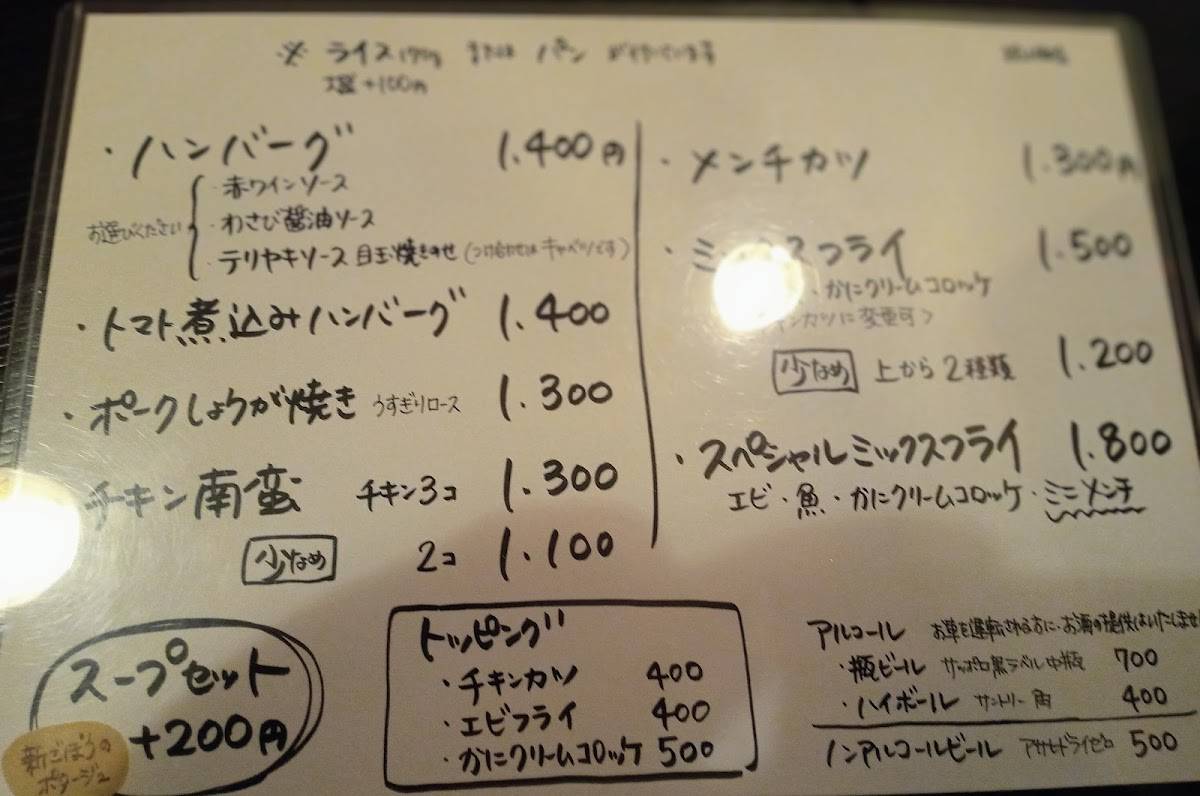 ※ ライス170g または パン が付いています
大盛+100円
・ハンバーグ 1.400円
お選びください
・赤ワインソース
・わさび醤油ソース
・テリヤキソース 目玉焼きのせ (つけ合わせはキャベツです)
・トマト煮込みハンバーグ 1.400
・ポークしょうが焼き うすぎりロース 1.300
チキン南蛮 チキン3コ 1.300
少なめ 2コ 1.100
スープセット
+200円
新ごぼうの
ポタージュ
・メンチカツ 1.300円
・ミックスフライ 1.500
・かにクリームコロッケ
に変更可>
少なめ 上から2種類 1.200
・スペシャルミックスフライ 1.800
エビ・魚・かにクリームコロッケ・ミニメンチ
トッピング
・チキンカツ 400
・エビフライ 400
・かにクリームコロッケ 500
アルコール お車を運転される方に、お酒の提供はいたしませ
・瓶ビール サッポロ黒ラベル中瓶 700
・ハイボール サントリー 角 400
ノンアルコールビール アサヒドライゼロ 500